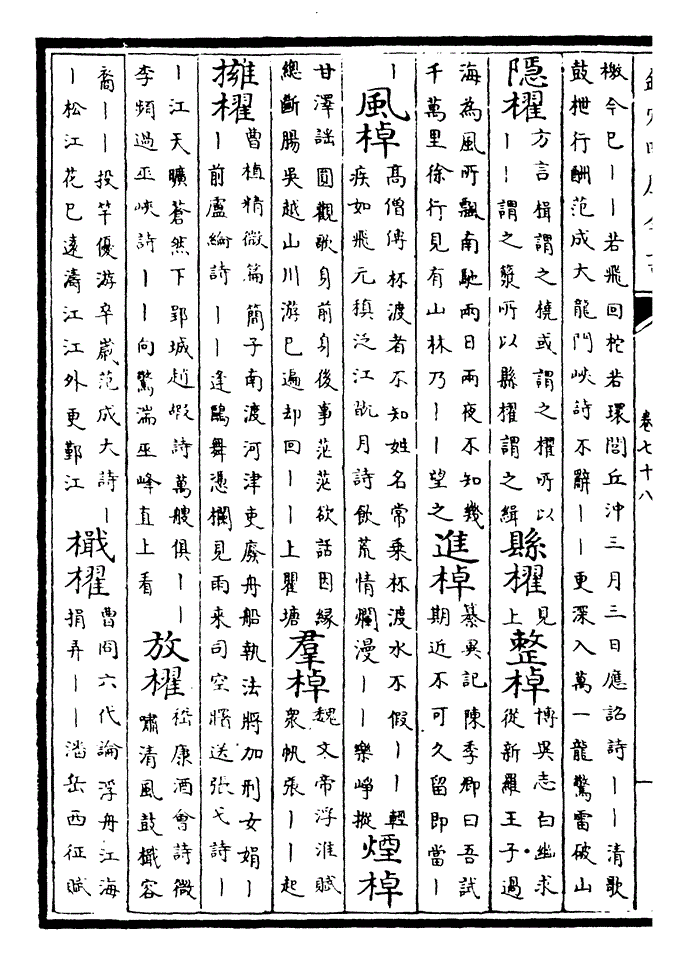 卷七十八
一
機今巳｜｜若飛回柁若環閭丘沖三月三日應詔詩｜｜清歌
鼓枻行酬范成大龍門峽詩不辭｜｜更深入萬一龍驚雷破山
隱櫂
方言楫謂之橈或謂之櫂所以
｜｜謂之所以縣櫂謂之緝
縣櫂
見
上
整棹
博異志白幽求
從新羅王子過
海為風所飄南馳兩日兩夜不知幾
千萬里徐行見有山林乃｜｜望之
進棹
纂異記陳季卿曰吾試
期近不可久留即當｜
｜
風棹
髙僧傳杯渡者不知姓名常乗杯渡水不假｜｜輕
疾如飛元稹泛江翫月詩飲荒情爛漫｜｜樂崢摐
煙棹
甘澤謡圓觀歌身前身後事茫茫欲話因縁
總斷腸吳越山川游巳遍却回｜｜上瞿塘
羣棹
魏文帝浮淮賦
衆帆張｜｜起
擁櫂
曹植精微篇簡子南渡河津吏廢舟船執法將加刑女娟｜
｜前盧綸詩｜｜逢鷗舞憑欄見雨来司空曙送張弋詩｜
｜江天曠蒼然下郢城趙嘏詩萬艘俱｜｜
李頻過巫峽詩｜｜向驚湍巫峰直上看
放櫂
嵇康酒會詩微
嘯清風鼓檝容
裔｜｜投竿優游卒嵗范成大詩｜
｜松江花巳遠濤江江外更鄞江
檝櫂
曹冏六代論浮舟江海
捐弄｜｜潘岳西征賦